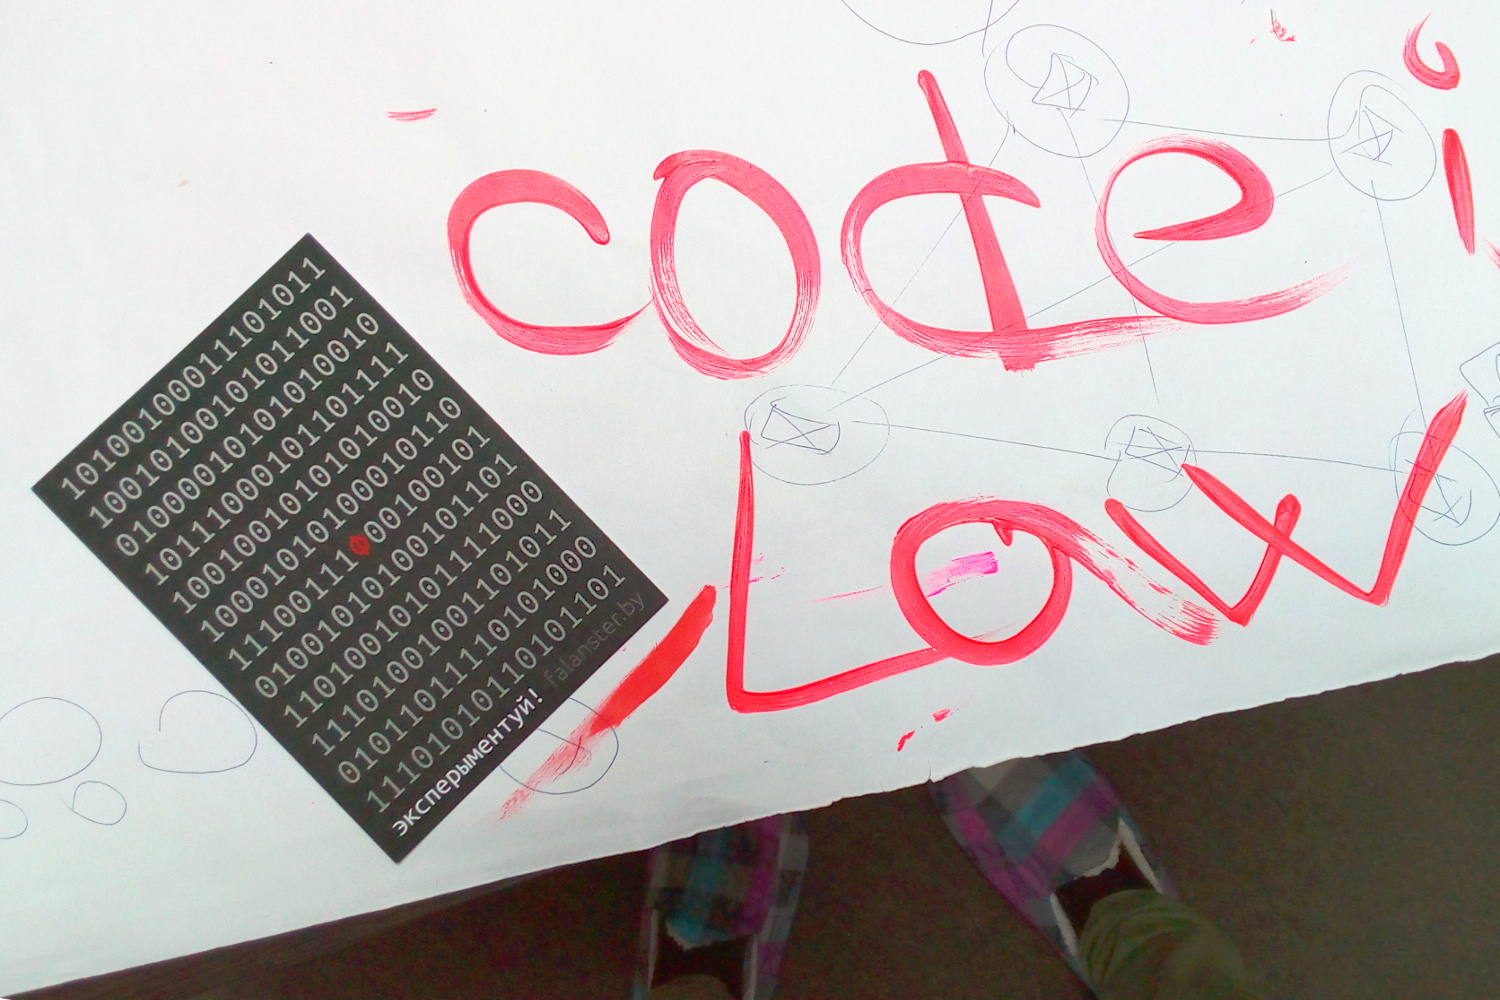 code i
Law
10100100011101011
10010100101011001
01000010101010010
10111000101101111
10010010101010010
10001010100010110
11100111000100101
01001010100101101
11010010101111000
11101001001101011
01011011110101000
11101010110101101
эксперыментуй! falanster.by